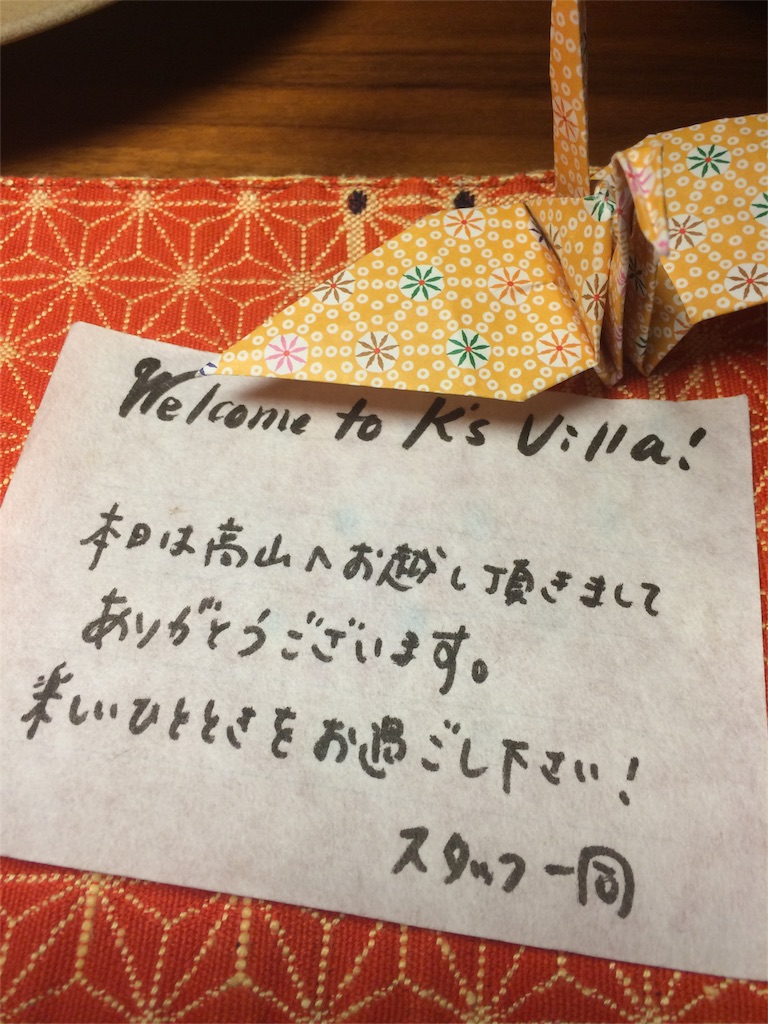 Welcome to K's Villa!
本日は高山へお越し頂きまして
ありがとうございます。
楽しいひとときをお過ごし下さい!
スタッフ一同